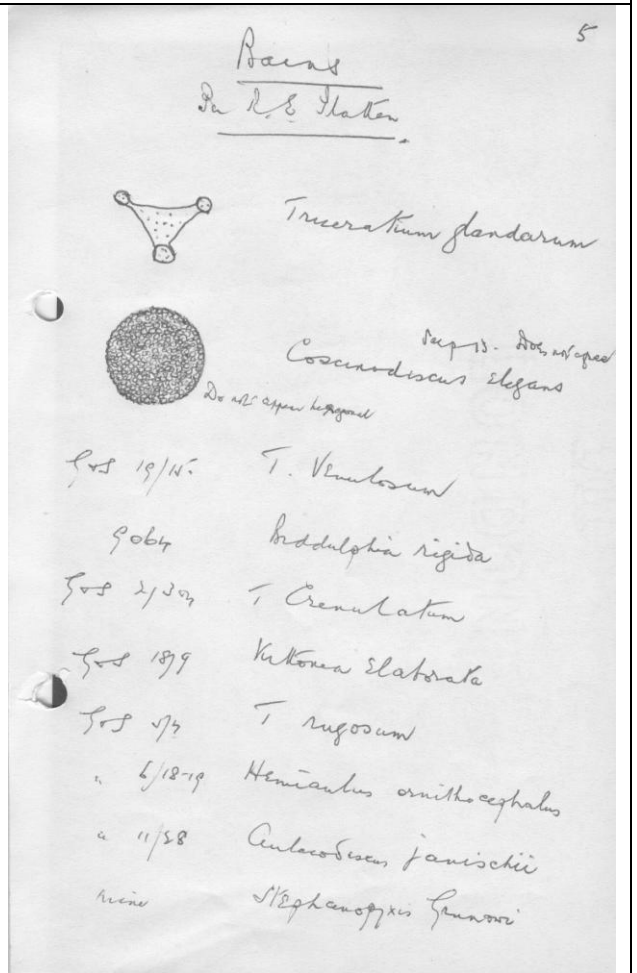 5
Bains
Per R. E. Flatten
Triceratium glandarum
Does not appear
Coscinodiscus Elegans
Do not appear hexagonal
G & S 19/15. T. Venulosum
9064 Biddulphia rigida
G & S 2/304 T Crenulatum
G & S 18/9 Vuttonea Elaborata
G & S 5/4 T rugosum
" 6/18-19 Hemiaulus ornithocephalus
" 11/58 Aulacodiscus janischii
mine Stephanopyxis Grunowi